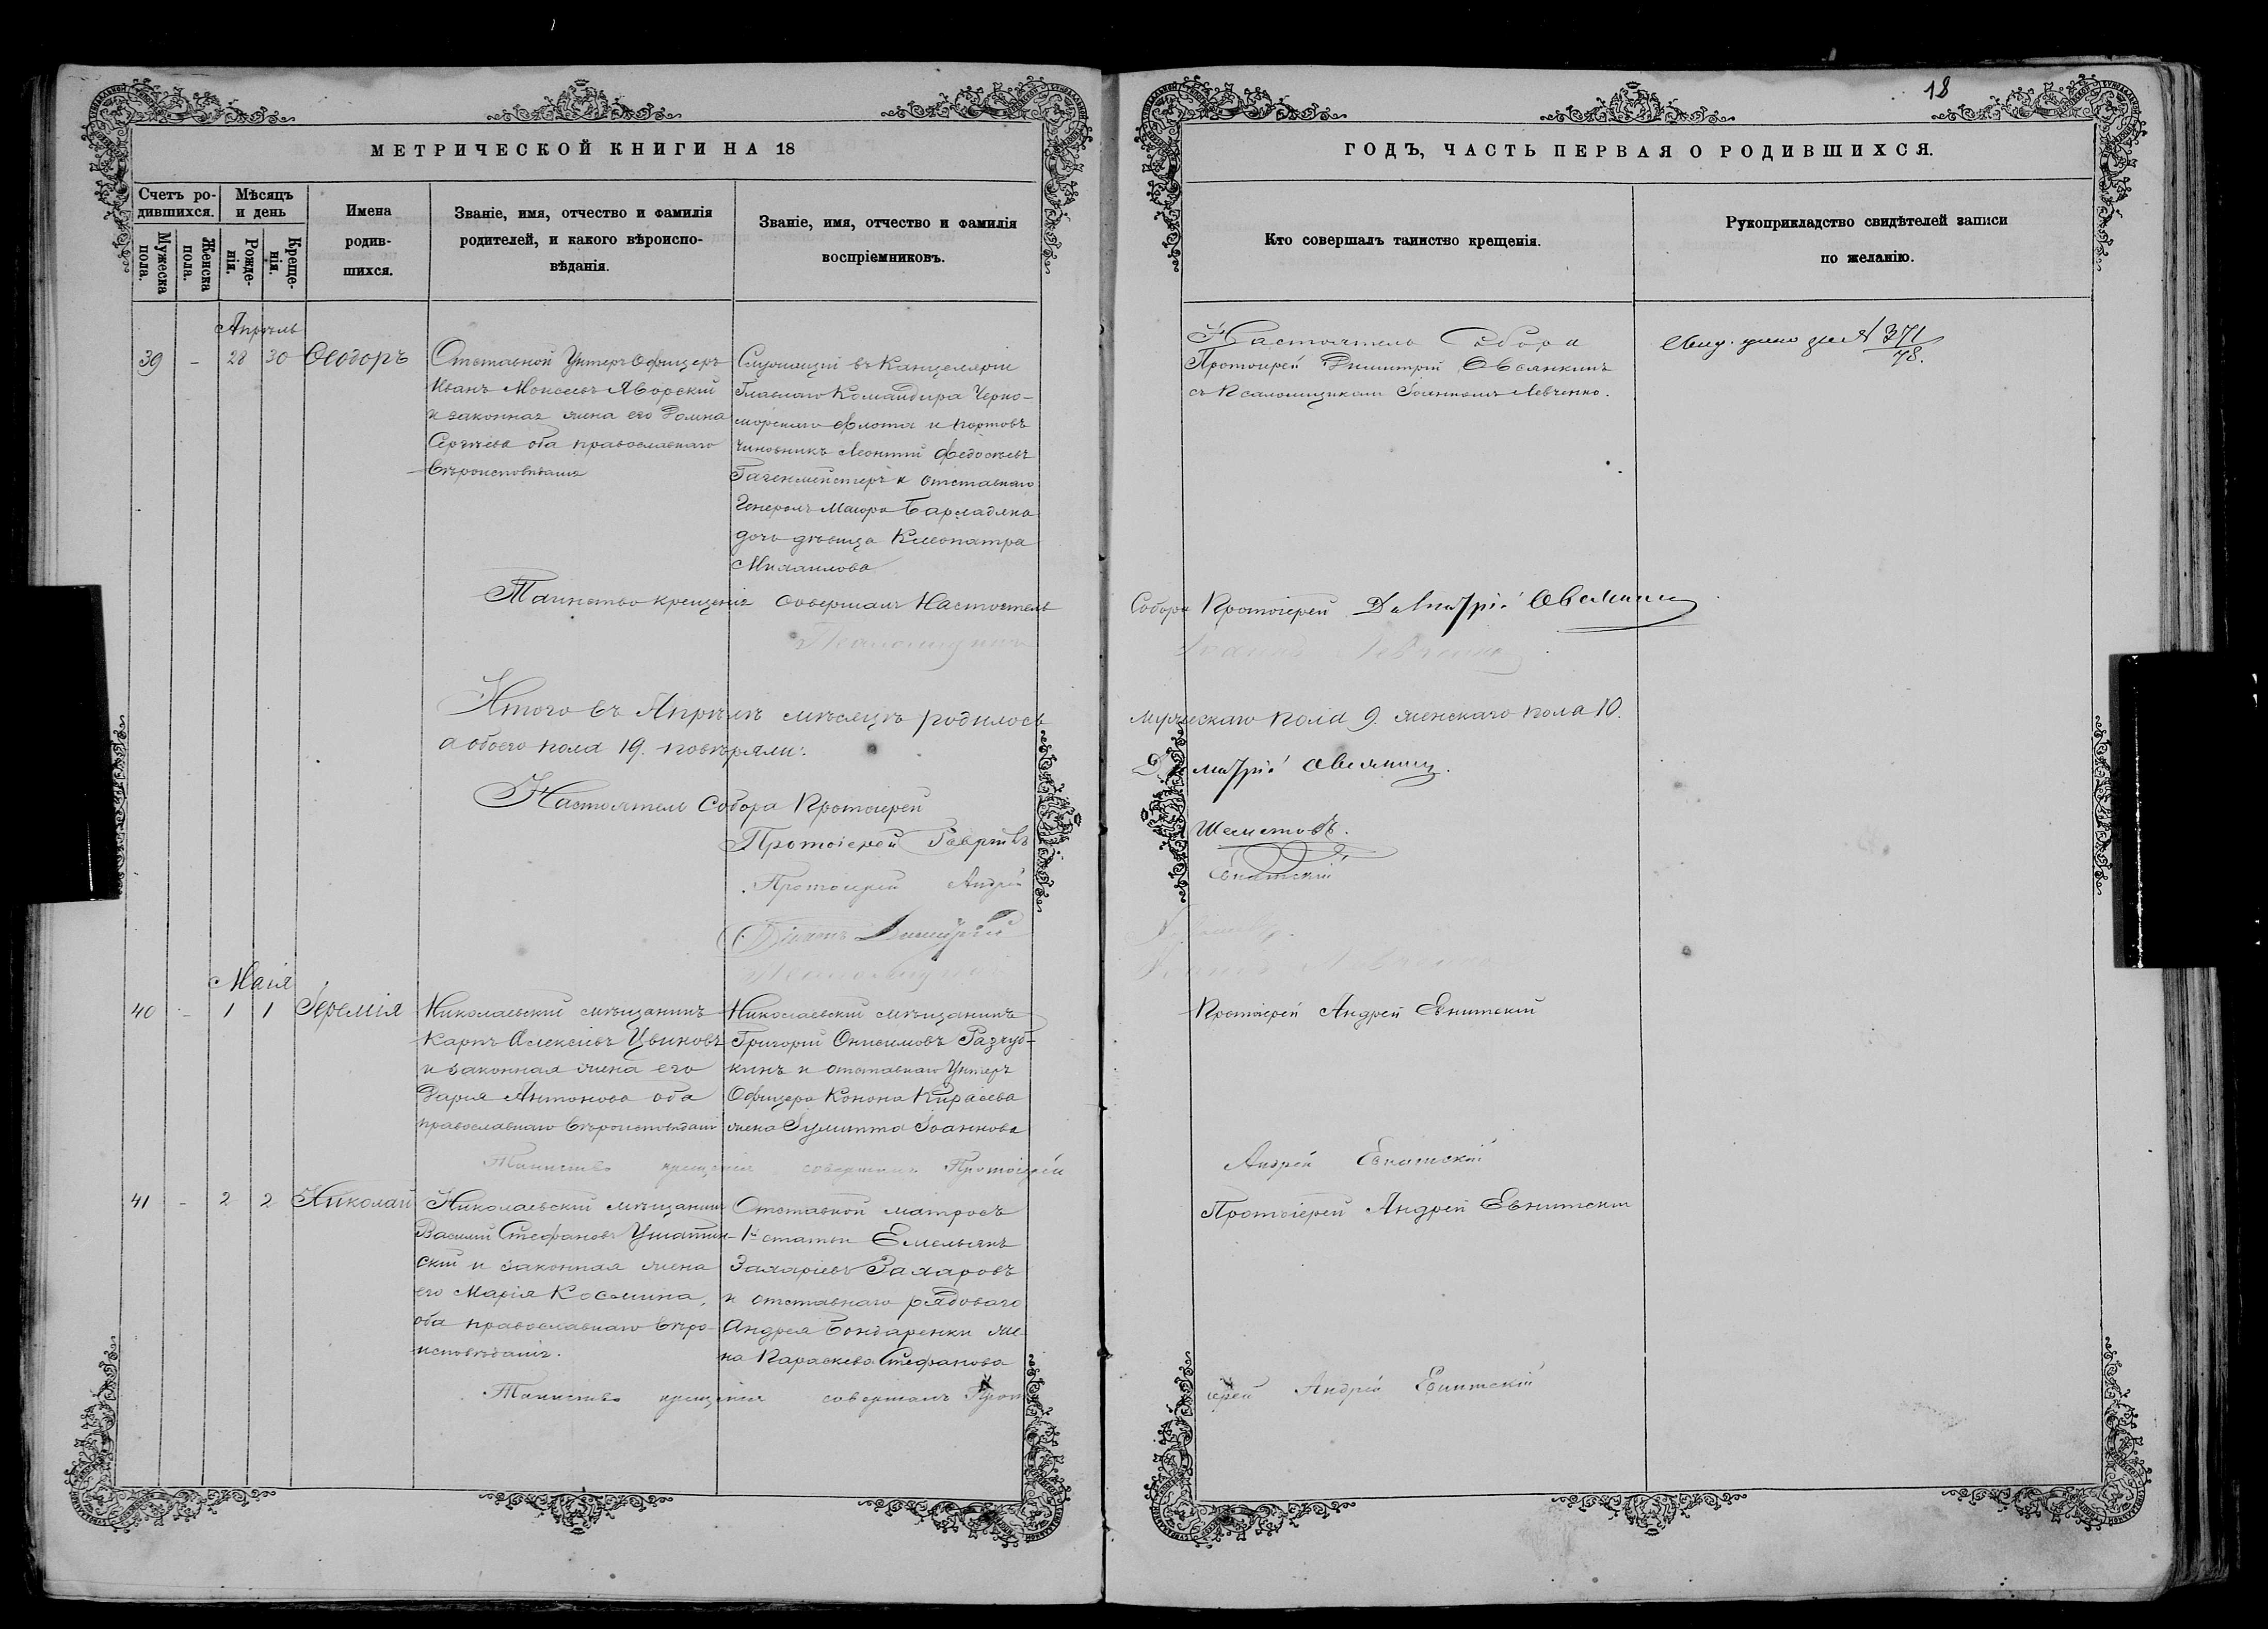 18
МЕТРИЧЕСКОЙ КНИГИ НА 18
ГОДЪ, ЧАСТЬ ПЕРВАЯ О РОДИВШИХСЯ.
Счетъ ро-
дившихся.
Мужеска
пола.
Женска
пола.
Мѣсяцъ
и день
Рожде-
нія.
Креще-
нія.
Имена
родив-
шихся.
Званіе, имя, отчество и фамилія
родителей, и какого вѣроиспо-
вѣданія.
Званіе, имя, отчество и фамилія
воспріемниковъ.
Кто совершалъ таинство крещенія.
Рукоприкладство свидѣтелей записи
по желанію.
Апрѣль
39 - 28 30 Ѳеодоръ
Отставной Унтеръ Офицеръ
Иванъ Моисеевъ Яворскій
и законная жена его Домна
Сергѣева оба православнаго
вѣроисповѣданія
Служащій въ Канцеляріи
Главнаго Командира Черно-
морскаго Флота и портовъ
Чиновникъ Леонтій Федосѣевъ
и отставнаго
Генералъ Маіора
дочь дѣвица Клеопатра
Михаилова
Настоятель Собора
Протоіерей Димитрій Овсянкинъ
съ Псаломщикомъ Іоанномъ Левченко.
№ 371
78.
Таинство крещенія совершалъ Настоятель Собора Протоіерей Димитрій
Псаломщикъ Іоаннъ Левченко
Итого въ Апрѣлѣ мѣсяцѣ родилось мужескаго пола 9. женскаго пола 10.
а обоего пола 19. повѣряли:
Настоятель Собора Протоіерей
Протоіерей
Протоіерей Андрей
Димитрій
Маія
40 - 1 1 Іеремія
Николаевскій мѣщанинъ
Карпъ Алексѣевъ Цвиновъ
и законная жена его
Дарія Антонова оба
православнаго вѣроисповѣданія
Николаевскій мѣщанинъ
Григорій Онисимовъ
и отставнаго Унтеръ
Офицера Конона Кирѣева
жена Іулитта Іоаннова
Протоіерей Андрей Евнитскій
Таинство крещенія совершалъ Протоіерей Андрей Евнитскій
41 - 2 2 Николай
Николаевскій мѣщанинъ
Василій Стефановъ
скій и законная жена
его Марія Косьмина,
оба православнаго вѣро-
исповѣданія.
Отставной матросъ
1й статьи Емельянъ
Захаріевъ Захаровъ
и отставнаго рядоваго
Андрея Бондаренки же-
на Параскева Стефанова
Протоіерей Андрей Евнитскій
Таинство крещенія совершалъ Протоіерей Андрей Евнитскій